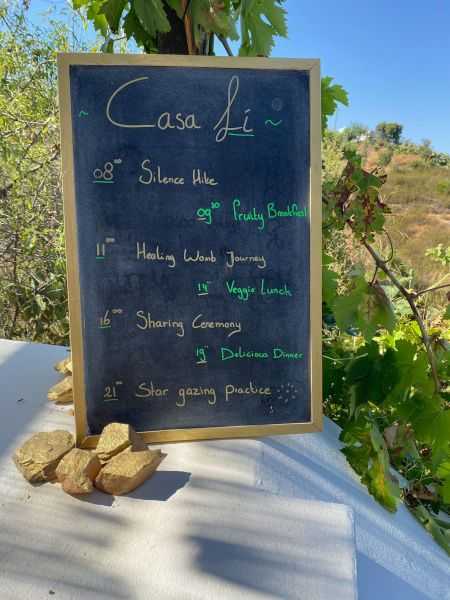 ~ Casa Lí ~
08⁰⁰ Silence Hike
09³⁰ Fruity Breakfast
11⁰⁰ Healing Womb Journey
14⁰⁰ Veggie Lunch
16⁰⁰ Sharing Ceremony
19⁰⁰ Delicious Dinner
21⁰⁰ Star gazing practice